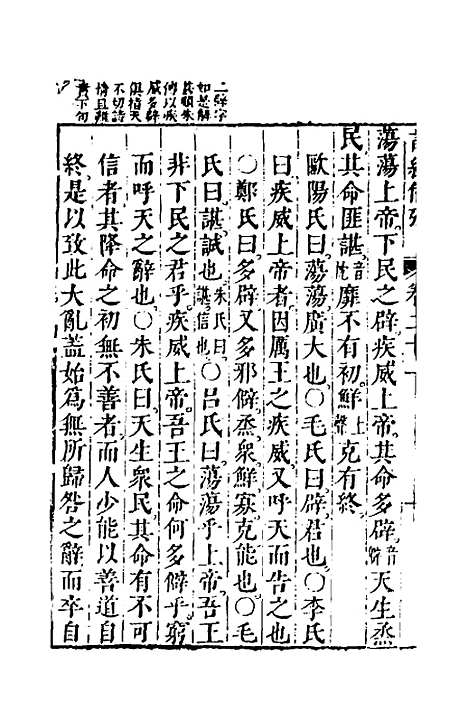 二辟字
如是解
甚順朱
傳以疾
威多辟
俱指天
不切詩
情且難
貫下句
蕩蕩上帝下民之辟疾威上帝其命多辟音僻天生烝
民其命匪諶音忱靡不有初鮮上聲克有終
歐陽氏曰蕩蕩廣大也○毛氏曰辟君也○李氏
曰疾威上帝者因厲王之疾威又呼天而告之也
○鄭氏曰多辟又多邪僻烝衆鮮寡克能也○毛
氏曰諶誠也朱氏曰諶信也○呂氏曰蕩蕩乎上帝吾王
非下民之君乎疾威上帝吾王之命何多僻乎窮
而呼天之辭也○朱氏曰天生衆民其命有不可
信者其降命之初無不善者而人少能以善道自
終是以致此大亂蓋始爲無所歸咎之辭而卒自